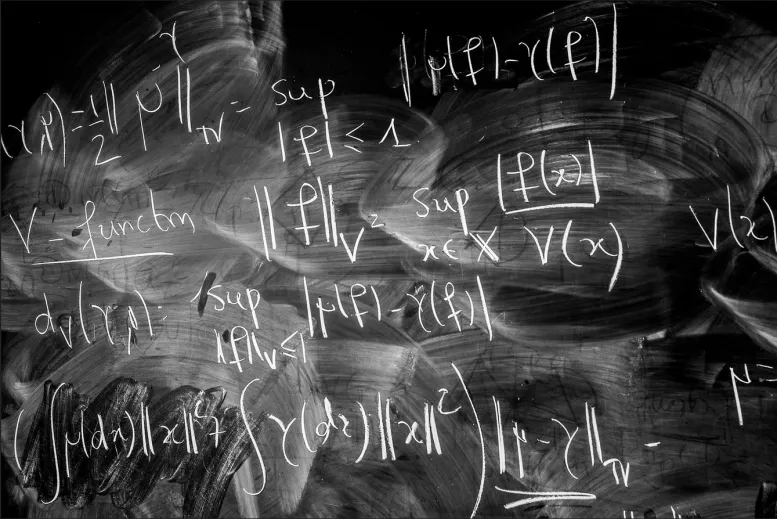 γ
(γ,μ) = 1/2 || μ - γ ||_TV = sup_{|f| ≤ 1} |μ(f) - γ(f)|
V - function ||f||_V = sup_{x ∈ X} |f(x)| / V(x) V(x)
d_V(γ,μ): sup_{||f||_V ≤ 1} |μ(f) - γ(f)|
μ =
( ∫ μ(dx) ||x||² + ∫ γ(dx) ||x||² ) ||μ - γ||_TV -